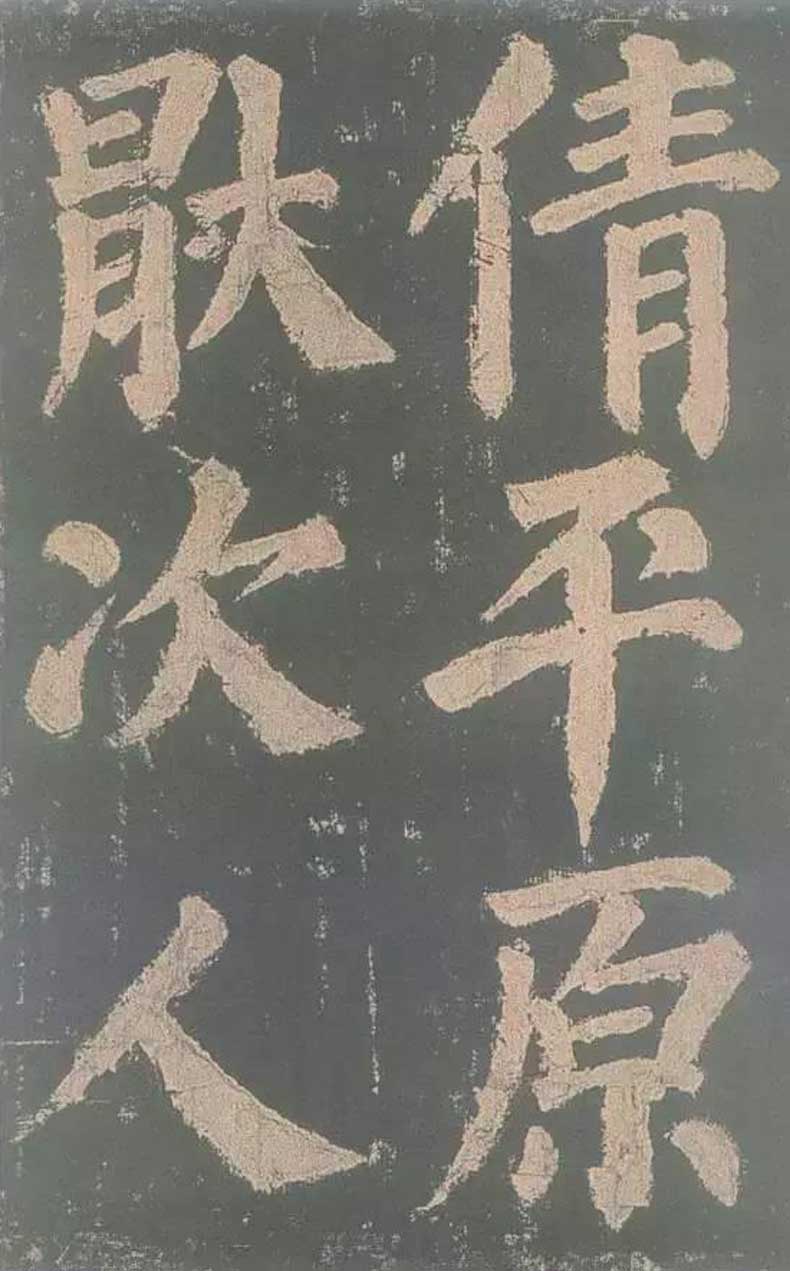 倩平原
猒次人